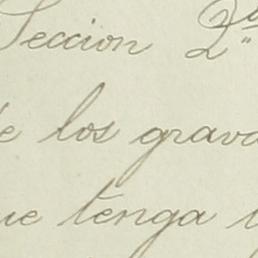 Seccion 2ª
de los grava
que tenga y